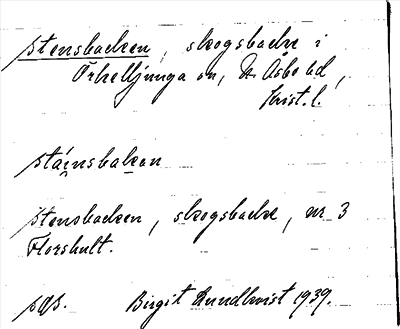 Stensbacken, skogsbacke i
Örkelljunga sn, N. Åsbo hd,
Krist. l.
stáinsbaken
Stensbacken, skogsbacke, nr 3
Florshult.
Birgit Lundkvist 1939.